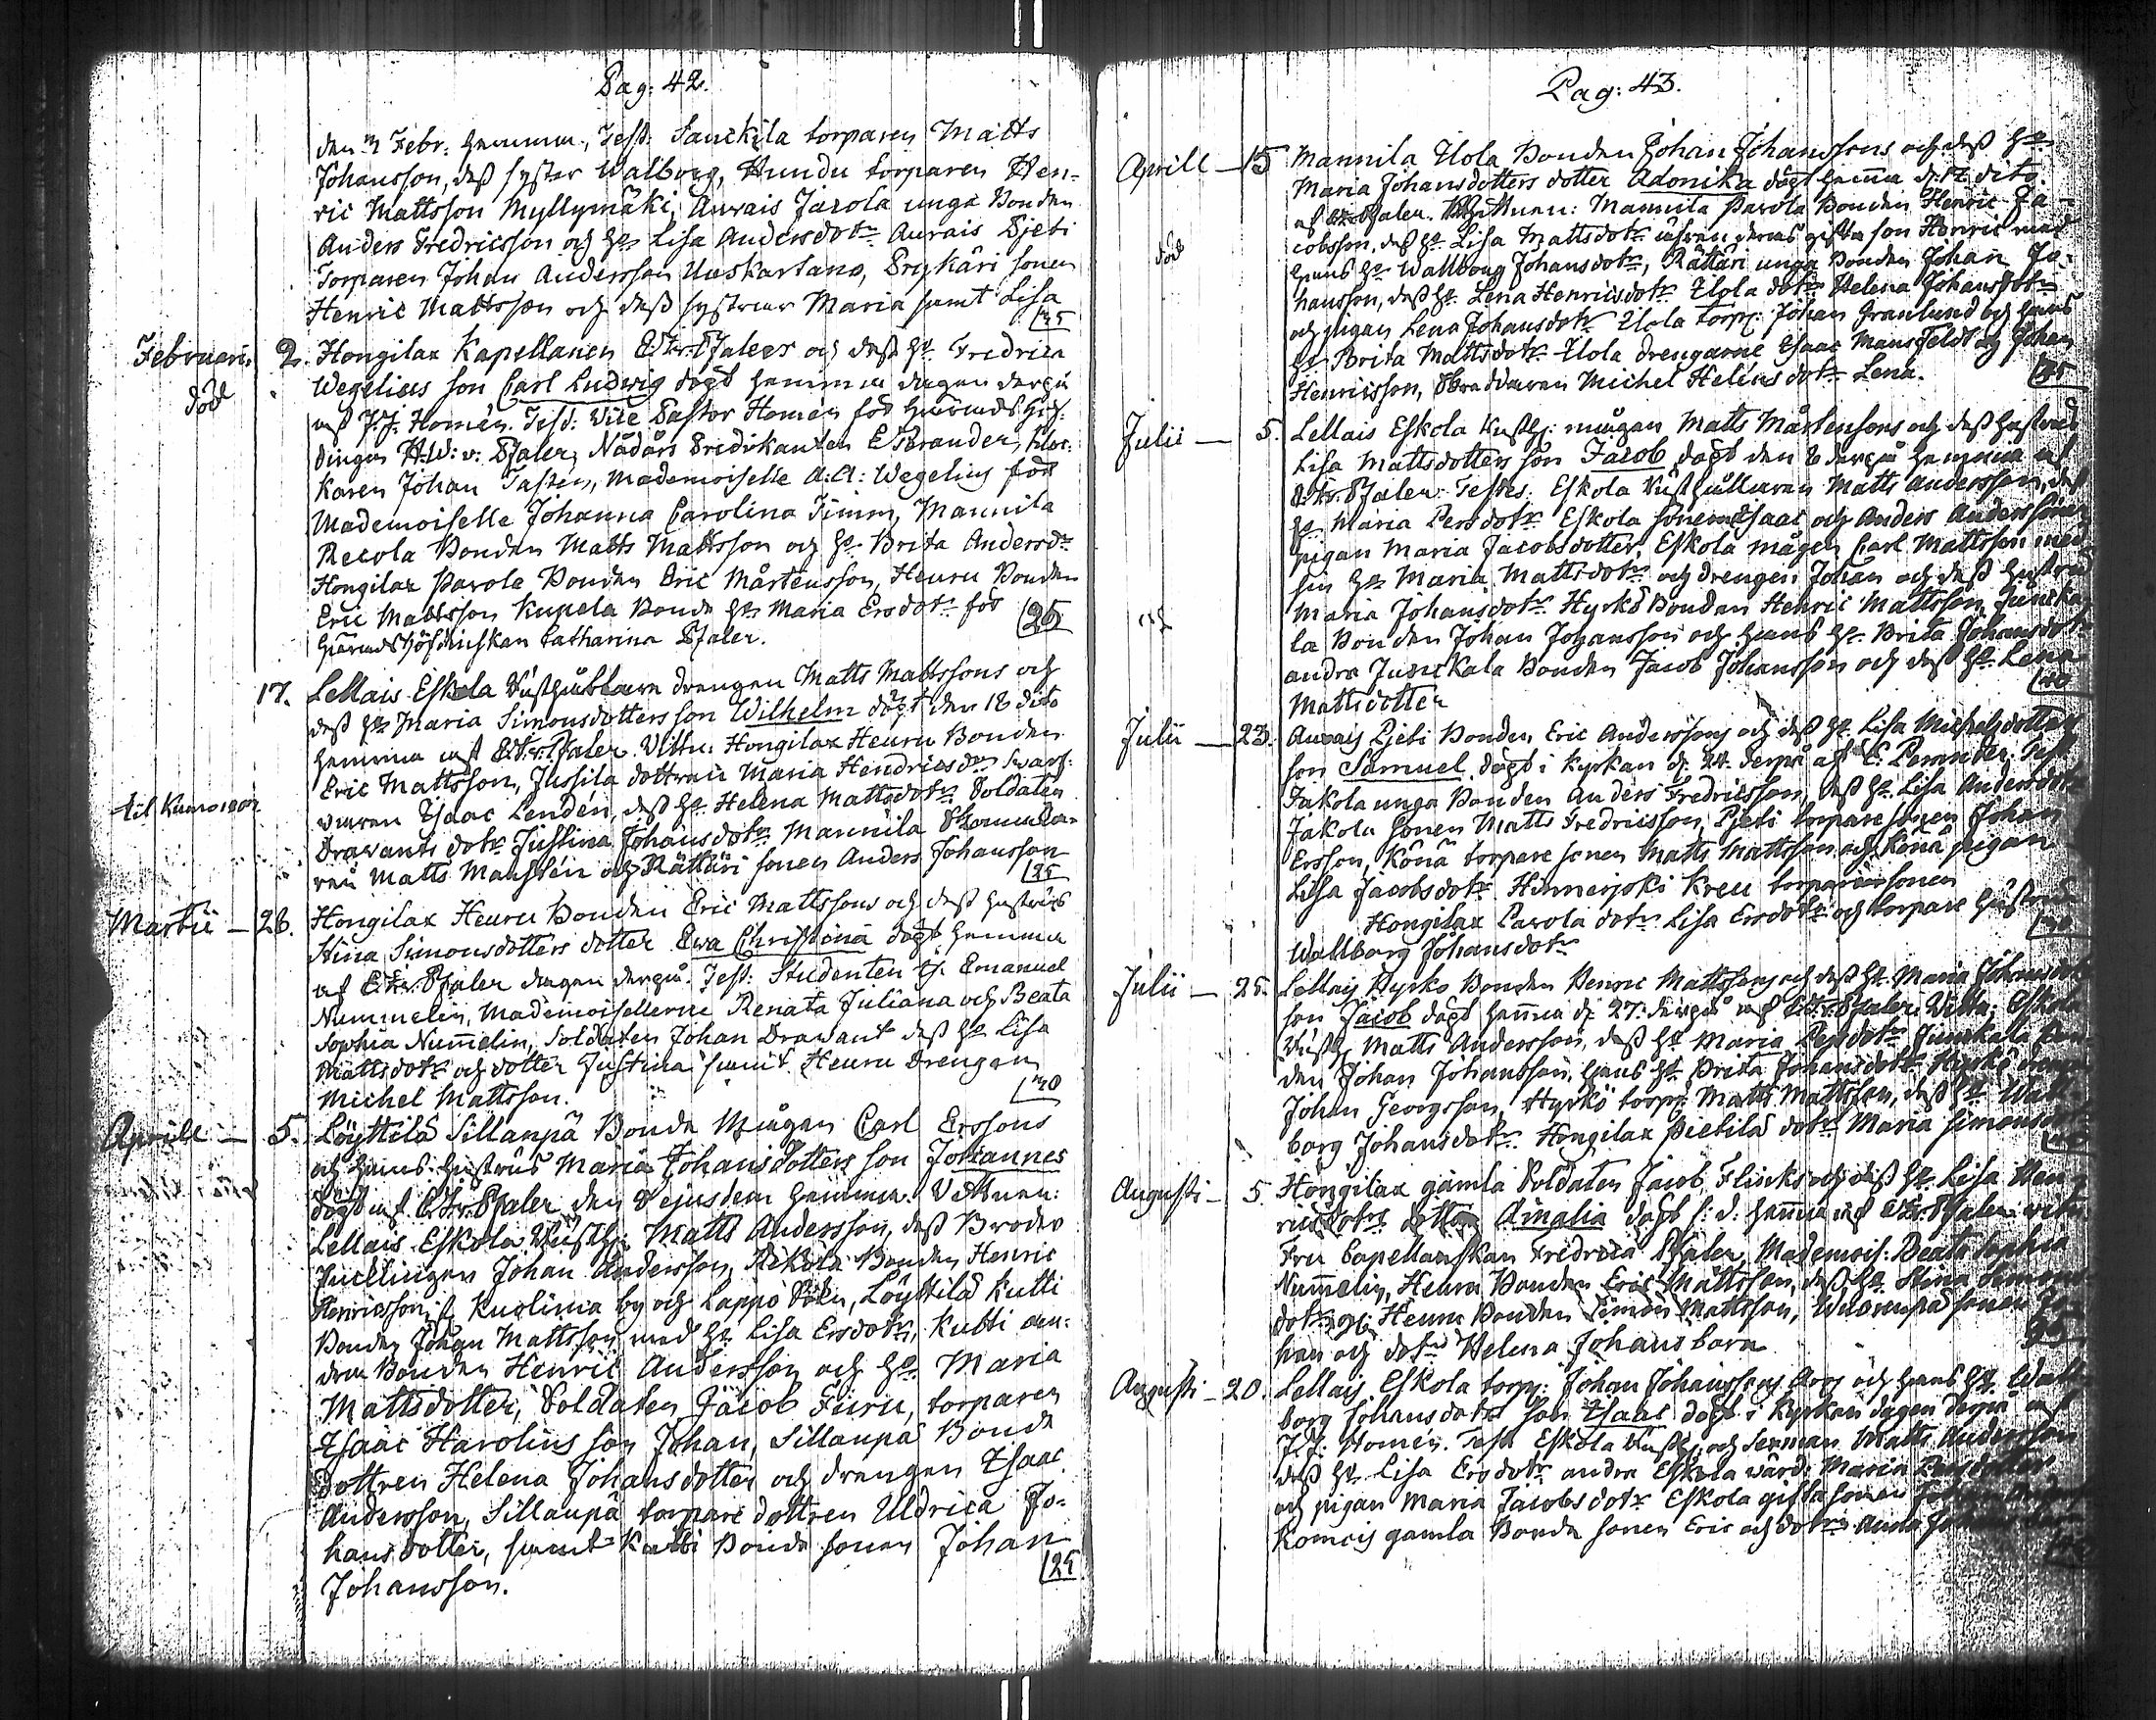 Pag: 42.
den 3 Febr: hemma, Test: Sauckila torparen Matts
Johansson, dess syster Walborg, Hundu torparen Hen-
ric Mattsson Myllymäki, Aurais Jacola unga Bonden
Anders Fredricsson och Ho Lisa Andersdotr Aurais Pjeti
Torparen Johan Andersson Uuskartano, Prykäri sonen
Henric Mattsson och dess systrar Maria samt Lisa
35
Februari. 2. Hongilax Kapellanen E Fr: Pfalers och dess Ho Fredrica
död Wegelius son Carl Ludwig döpt hemma dagen derpå
af J. J. Homén. Test: Vice Pastor Homén för Härads Höf-
dingen A. W: v: Pfaler, Nådårs Predikanten E Perander, kloc-
karen Johan Tastén, Mademoiselle A: A: Wegelius för
Mademoiselle Johanna Carolina Timm, Mannila
Recola Bonden Matts Mattsson och Ho Brita Andersdr
Hongilax Parola Bonden Eric Mårtensson, Heuru Bonden
Eric Mattsson Kupela Bonde Ho Maria Ersdotr för
Häradshöfdinskan Catharina Pfaler.
25
17. Lellais Eskola Rusthållare drengen Matts Mattssons och
dess Ho Maria Simonsdotters son Wilhelm döpt den 18 dito
hemma af E. Fr. Pfaler. Vittn: Hongilax Heuru Bonden
Eric Mattsson, Jussila dottren Maria Hendricsdr Swarf-
til Kumo 1802
waren Isaac Lenden, dess Ho Helena Mattsdotr Soldaten
Drawants dotr Justina Johansdotr Mannila
ren Matts Manstén och Rättäri sonen Anders Johansson
35
Martii — 28. Hongilax Heuru Bonden Eric Mattssons och dess hustrus
Stina Simonsdotters dotter Ewa Christina döpt hemma
af E. Fr. Pfaler dagen derpå. Test: Studenten Emanuel
Nummelin, Mademoisellerne Renata Juliana och Beata
Sophia Numelin, Soldaten Johan Drawant dess Ho Lisa
Mattsdotr och dotter Justina samt Heuru Drengen
Michel Mattsson.
30
Aprill — 5. Löyttilä Sillanpä Bonde Mågen Carl Erssons
och hans hustrus Maria Johansdotters son Johannes
döpt af E. Fr. Pfaler den 8 ejusdem hemma. Vittnen:
Lellais Eskola Rusth: Matts Andersson, dess Broder
Ynclingen Johan Andersson, Rekola Bonden Henric
Henricsson, Kuolima by och Lappo Sokn, Löyttilä Kutti
Bonden Johan Mattsson med Ho Lisa Ersdotr, Kutti an-
dra Bonden Henric Andersson och Ho Maria
Mattsdotter, Soldaten Jacob Furu, torparen
Isaac Harolins son Johan, Sillanpä Bonde
dottren Helena Johansdotter och drengen Isaac
Andersson, Sillanpä torpare dottren Uldrica Jo-
hansdotter, samt Kutti Bonde sonen Johan
Johansson.
25
Pag: 43.
Aprill — 15 Mannila Ilola Bonden Johan Johanssons och dess Ho
Maria Johansdotters dotter Adonika döpt hemma d. 17 dito
af Pfaler. Vittnen: Mannila Parola Bonden Henric Ja-
död cobsson, dess Ho Lisa Mattsdotr äfven deras gifta son Henric med
hans Ho Wallborg Johansdotr, Rättäri unga Bonden Johan Jo-
hansson, dess Ho Lena Henricsdotr Ilola dotr Helena Johansdotr
och pigan Lena Johansdotr Ilola torp: Johan Granlund och hans
Ho Brita Mattsdotr Ilola drengarne Isaac Mansfeldt och Johan
Henricsson, Skraddaren Michel Heléns dotr Lena.
35
Julii — 5. Lellais Eskola Rusth: mågen Matts Mårtensons och dess hustrus
Lisa Mattsdotters son Jacob döpt den 8 derpå hemma af
E. Fr. Pfaler. Testes: Eskola Rusthållaren Matts Andersson, dess
Ho Maria Persdotr Eskola sönerne Isaac och Anders Anderssöner,
pigan Maria Jacobsdotter, Eskola mågen Carl Mattsson med
sin Ho Maria Mattsdotr och drengen Johan och dess hustru
Maria Johansdotr Hyrkö Bonden Henric Mattsson Juncka-
la Bonden Johan Johansson och hans Ho Brita Johansdotr
andra Junckala Bonden Jacob Johansson och dess Ho Lena
Mattsdotter
40
Julii — 23. Aurais Pjeti Bonden Eric Anderssons och dess Ho Lisa Michelsdotters
son Samuel döpt i kyrkan d. 24. derpå af E: Perander. Test:
Jakola unga Bonden Anders Fredricsson, dess Ho Lisa Andersdotr
Jakola sonen Matts Fredricsson, Pjeti torpare sonen Johan
Ersson, Könä torpare sonen Matts Mattsson och Könä pigan
Lisa Jacobsdotr Hinnerjoki Kreu torparesonen
Hongilax Parola dotr Lisa Ersdotr och torpare hustrun
Wallborg Johansdotr
Julii — 25. Lellais Hyrkö Bonden Henric Mattssons och dess Ho Maria Johansdotr
son Jacob döpt hemma d. 27: derpå af E. Fr. Pfaler. Vittn: Eskola
Rusth: Matts Andersson, dess Ho Maria Persdotr Junckala Bon-
den Johan Johansson, hans Ho Brita Johansdotr Hyrkö dreng
Johan Georgsson, Hyrkö torp: Matts Mattsson, dess Ho Wall-
borg Johansdotr Hongilax Pietilä dotr Maria Simonsdotr
Augusti — 5 Hongilax gamla Soldaten Jacob Flincks och dess Ho Lisa Hen-
ricsdotrs dotter Amalia döpt s: d: hemma af E. Fr. Pfaler. vitn:
Fru Capellanskan Fredrica Pfaler, Mademois: Beata Sophia
Numelin, Heuru Bonden Eric Mattsson, dess Ho Stina Simons-
dotr och Heuru Bonden Simon Mattsson, sonen Jo-
han och dotr Helena Johans barn
Augusti — 20. Lellais Eskola torp: Johan Johanssons Roos och hans Ho Wall-
borg Johansdotrs son Isaac döpt i Kyrkan dagen derpå af
J. J: Homén. Test Eskola Rusth: och Sexman Matts Andersson
dess Ho Lisa Ersdotr andra Eskola värd: Maria Persdotter,
och pigan Maria Jacobsdotr Eskola gifta sonen
Komois gamla Bonde sonen Eric och dotr Anna